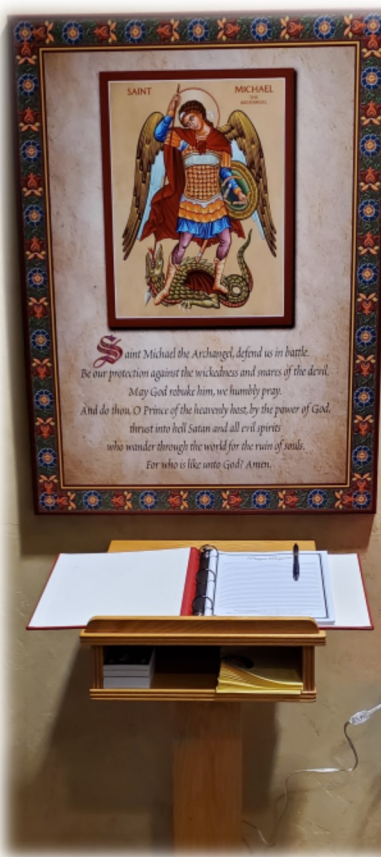 SAINT MICHAEL
THE
ARCHANGEL
Saint Michael the Archangel, defend us in battle.
Be our protection against the wickedness and snares of the devil.
May God rebuke him, we humbly pray.
And do thou, O Prince of the heavenly host, by the power of God,
thrust into hell Satan and all evil spirits
who wander through the world for the ruin of souls.
For who is like unto God? Amen.